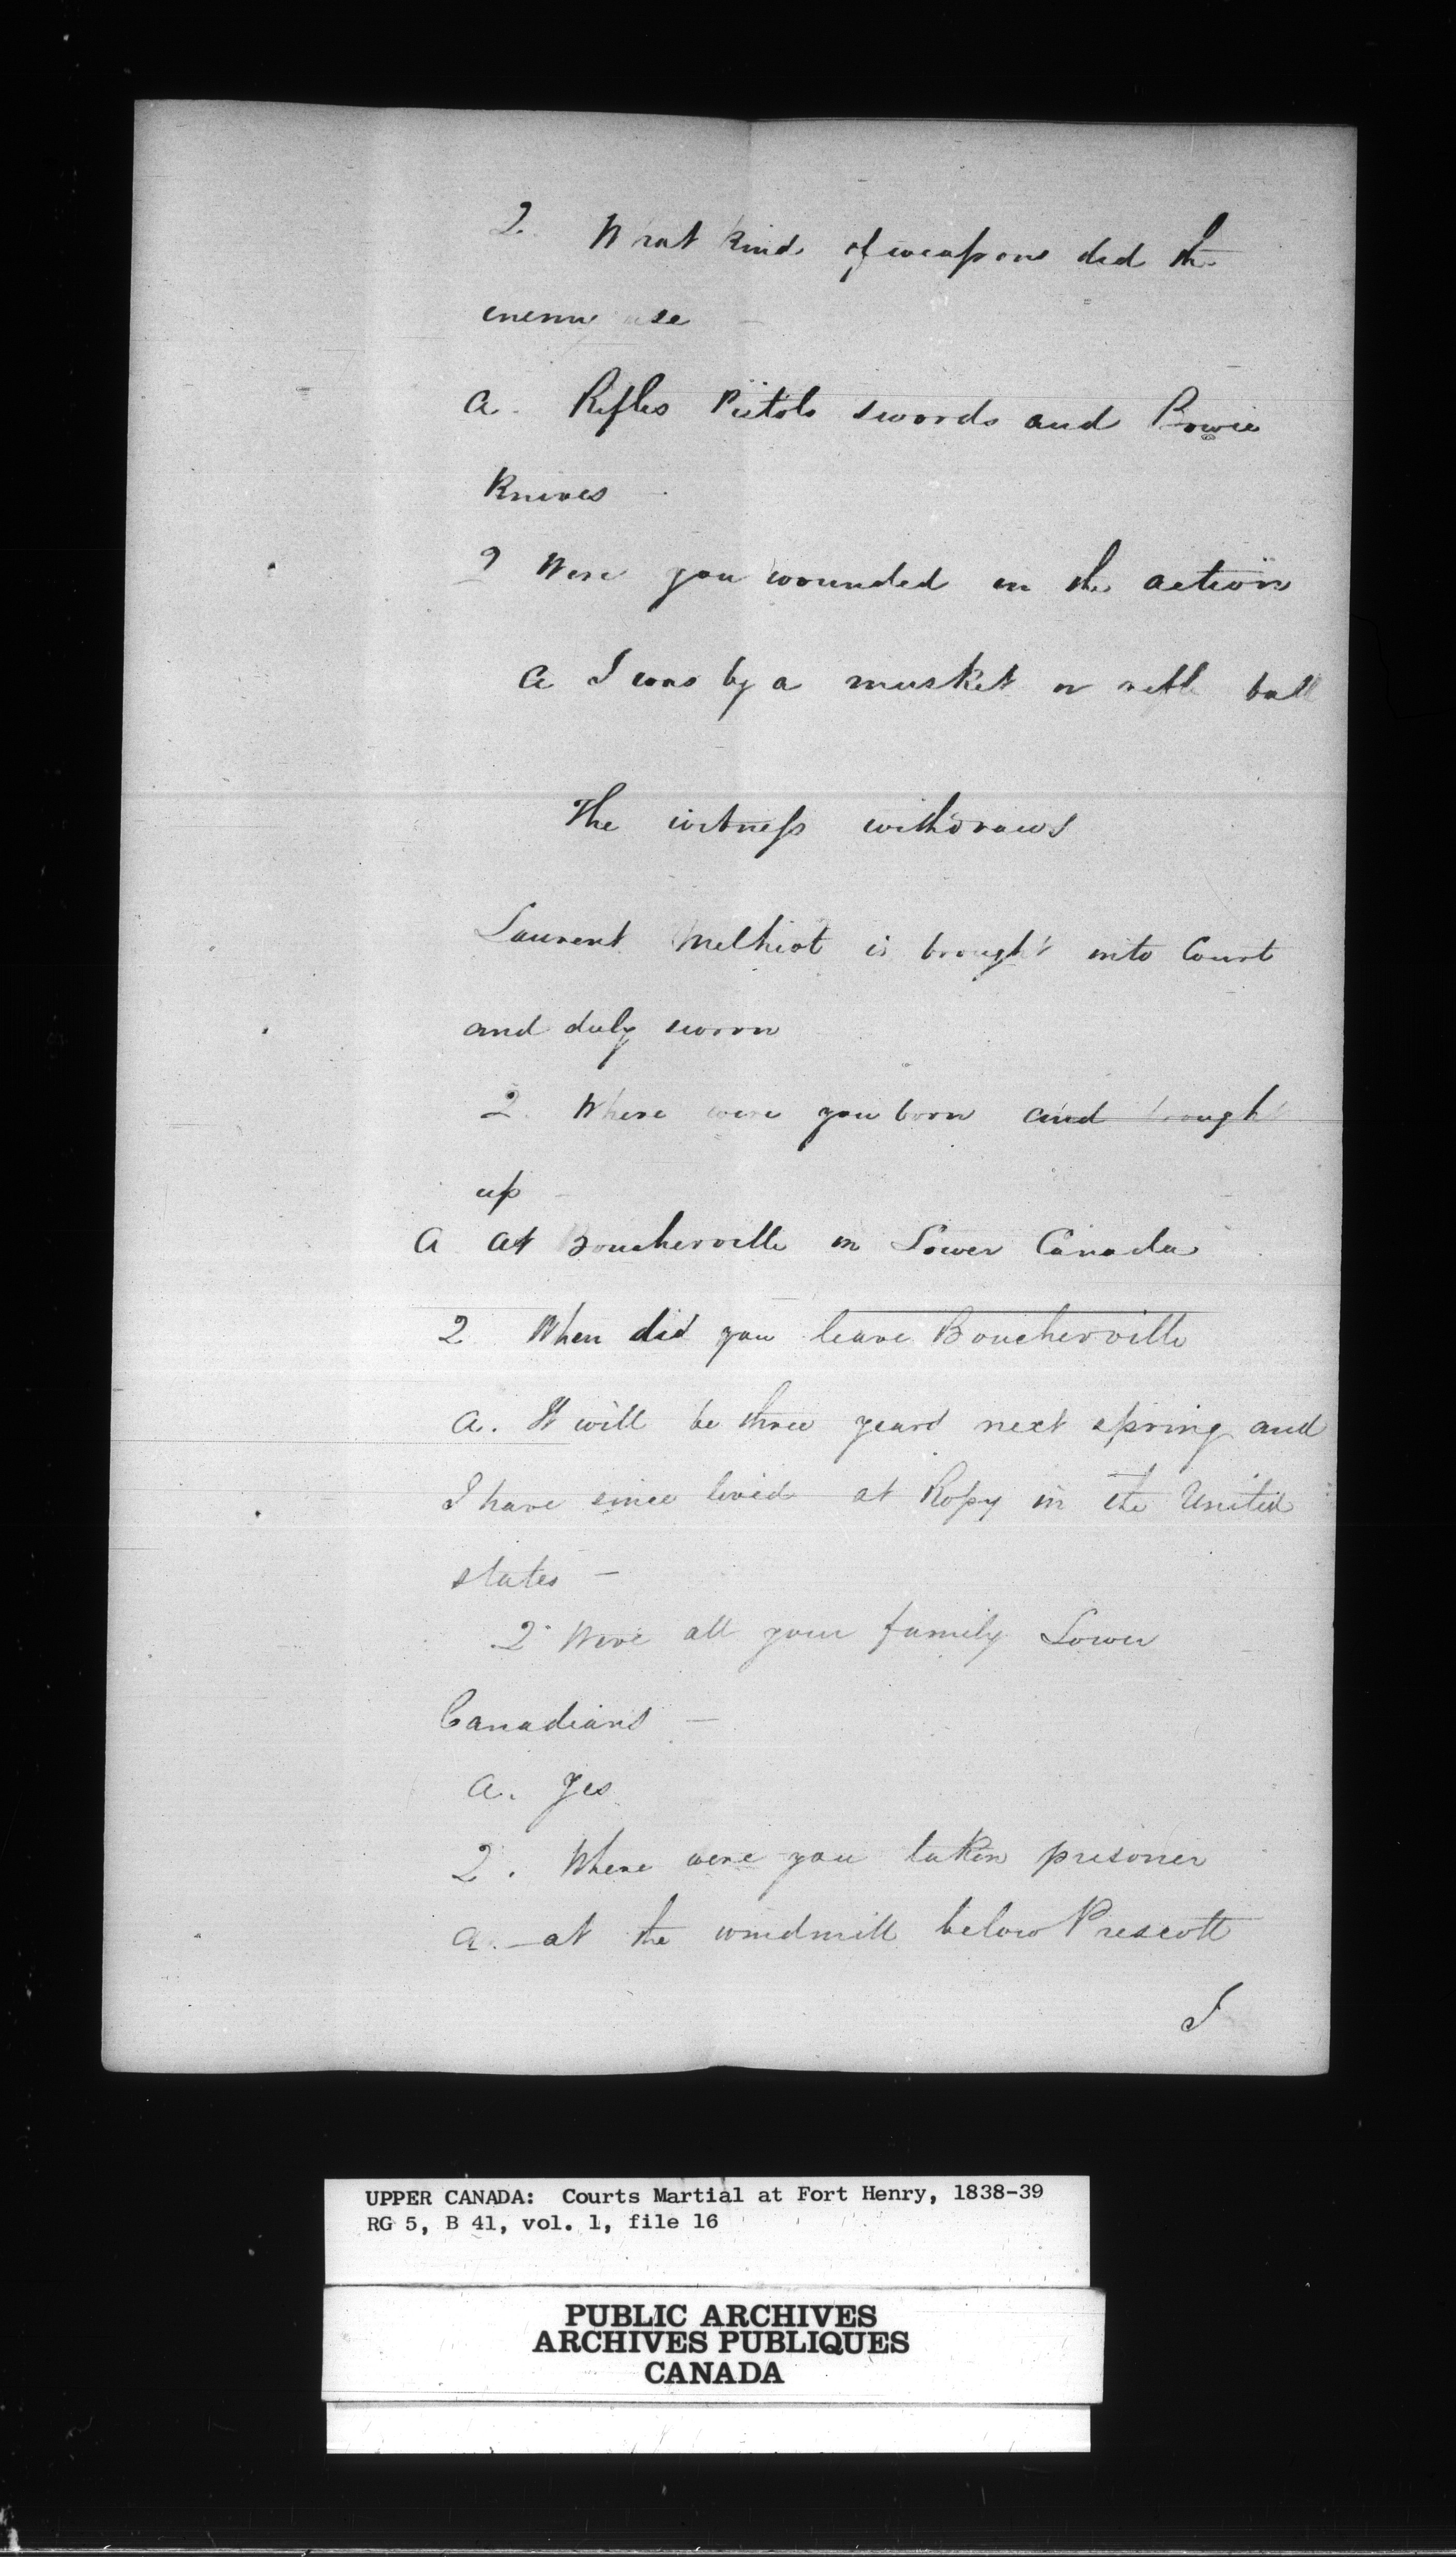 Q. What kind of weapons did the
enemy use –
A. Rifles Pistols swords and Bowie
Knives –
Q Were you wounded in the action
A I was by a musket or rifle ball
The witness withdraws
Laurent Melhiot is brought into Court
and duly sworn
Q. Where were you born and brought
up –
A At Boucherville in Lower Canada
Q When did you leave Boucherville
A. It will be three years next spring and
I have since lived at Rossy in the United
states –
Q. Were all your family Lower
Canadians –
A. Yes
Q. Where were you taken prisoner
A. – at the windmill below Prescott
I
UPPER CANADA: Courts Martial at Fort Henry, 1838-39
RG 5, B 41, vol. 1, file 16
PUBLIC ARCHIVES
ARCHIVES PUBLIQUES
CANADA